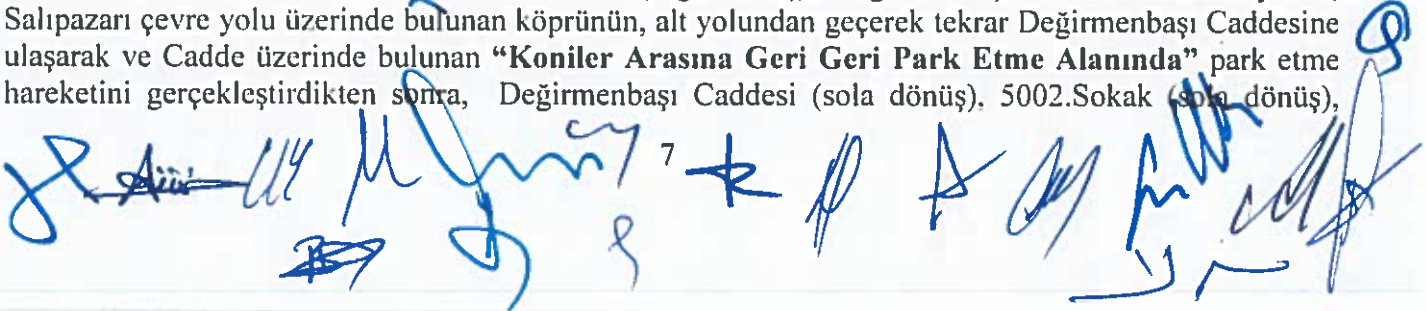 Salıpazarı çevre yolu üzerinde bulunan köprünün, alt yolundan geçerek tekrar Değirmenbaşı Caddesine
ulaşarak ve Cadde üzerinde bulunan “Koniler Arasına Geri Geri Park Etme Alanında” park etme
hareketini gerçekleştirdikten sonra, Değirmenbaşı Caddesi (sola dönüş), 5002.Sokak (sola dönüş),
7